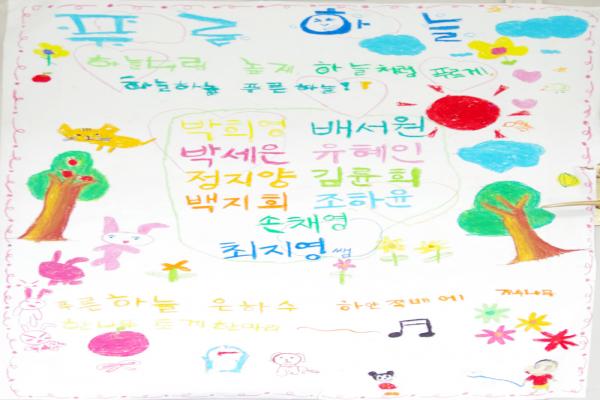 푸른 하늘
하늘처럼 높게 하늘처럼 푸르게
하늘하늘 푸른 하늘!
박희영 배서원
박세은 유혜인
정지양 김륜희
백지희 조하윤
손채영
최지영쌤
푸른 하늘 은하수 하얀 쪽배에 계수나무
한나무 토끼 한마리